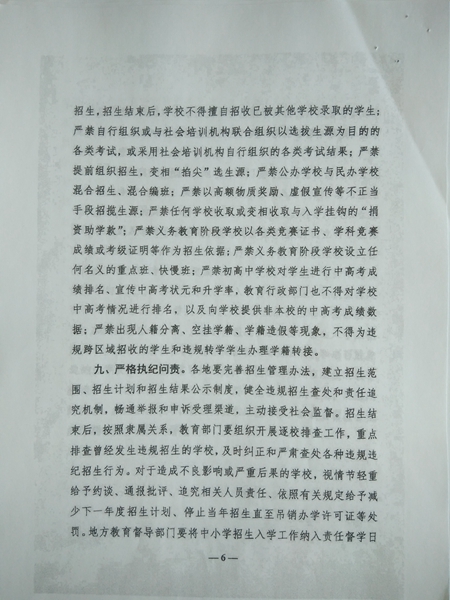 招生，招生结束后，学校不得擅自招收已被其他学校录取的学生；
严禁自行组织或与社会培训机构联合组织以选拔生源为目的的
各类考试，或采用社会培训机构自行组织的各类考试结果；严禁
提前组织招生，变相“掐尖”选生源；严禁公办学校与民办学校
混合招生、混合编班；严禁以高额物质奖励、虚假宣传等不正当
手段招揽生源；严禁任何学校收取或变相收取与入学挂钩的“捐
资助学款”；严禁义务教育阶段学校以各类竞赛证书、学科竞赛
成绩或考级证明等作为招生依据；严禁义务教育阶段学校设立任
何名义的重点班、快慢班；严禁初高中学校对学生进行中高考成
绩排名、宣传中高考状元和升学率，教育行政部门也不得对学校
中高考情况进行排名，以及向学校提供非本校的中高考成绩数
据；严禁出现人籍分离、空挂学籍、学籍造假等现象，不得为违
规跨区域招收的学生和违规转学学生办理学籍转接。
九、严格执纪问责。各地要完善招生管理办法，建立招生范
围、招生计划和招生结果公示制度，健全违规招生查处和责任追
究机制，畅通举报和申诉受理渠道，主动接受社会监督。招生结
束后，按照隶属关系，教育部门要组织开展逐校排查工作，重点
排查曾经发生违规招生的学校，及时纠正和严肃查处各种违规违
纪招生行为。对于造成不良影响或严重后果的学校，视情节轻重
给予约谈、通报批评、追究相关人员责任、依照有关规定给予减
少下一年度招生计划、停止当年招生直至吊销办学许可证等处
罚。地方教育督导部门要将中小学招生入学工作纳入责任督学日
—6—